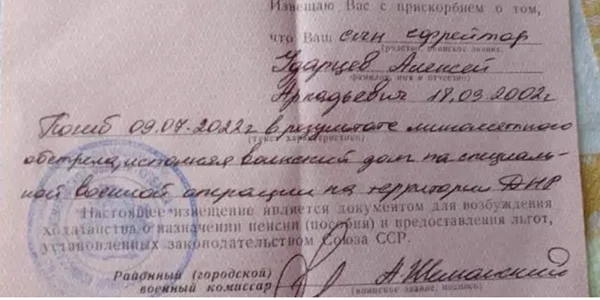 Извещаю Вас с прискорбием о том,
что Ваш сын ефрейтор
(родство, воинское звание,
Ударцев Алексей
фамилия, имя и отчество)
Аркадьевич 18.09.2002г
Погиб 09.07.2022г в результате минометного
обстрела, исполняя воинский долг на специаль-
ной военной операции на территории ДНР
Настоящее извещение является документом для возбуждения
ходатайства о назначении пенсии (пособия) и предоставления льгот,
установленных законодательством Союза ССР.
Районный (городской)
военный комиссар
(воинское звание, подпись)